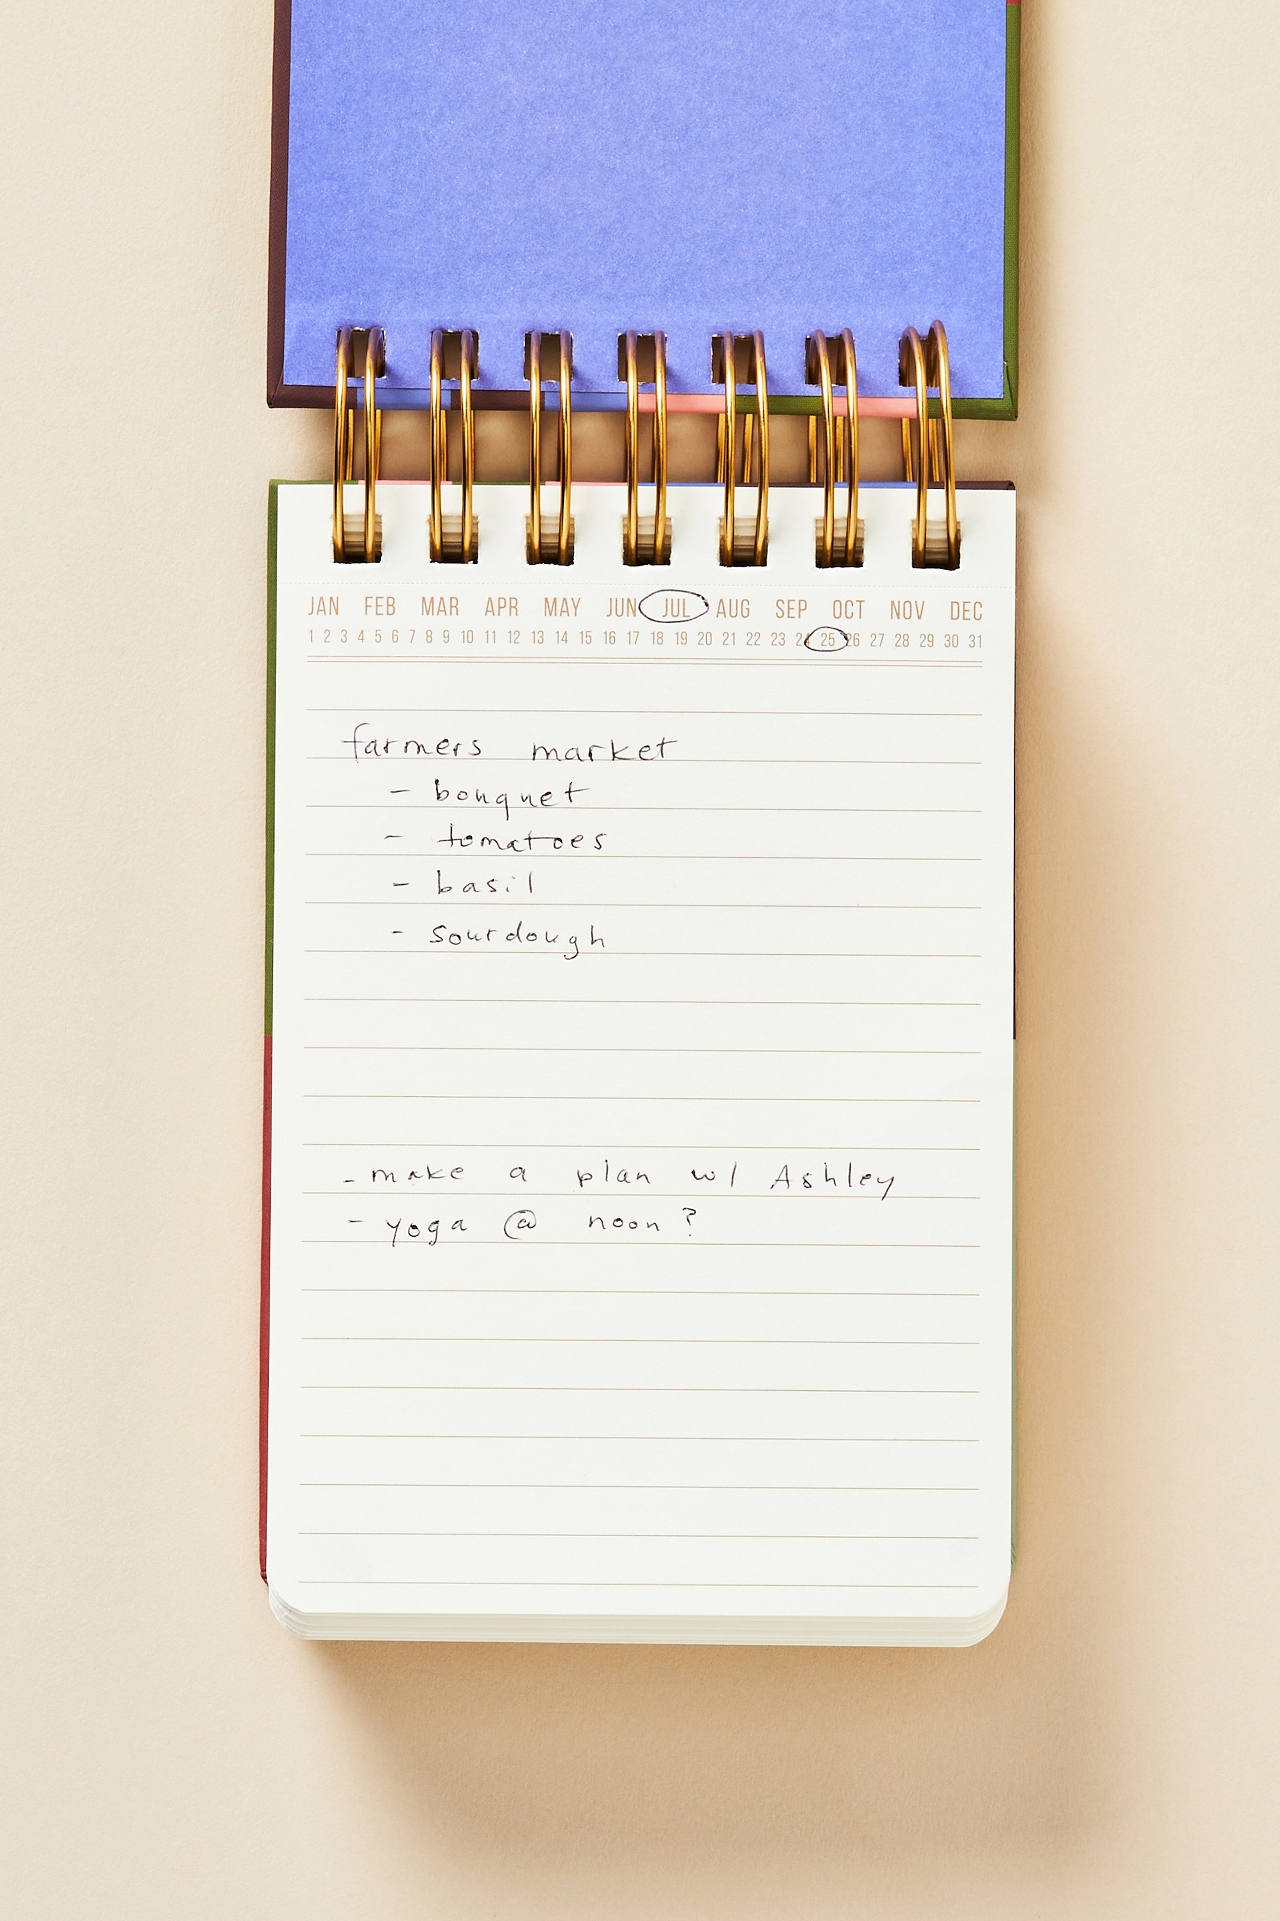 JAN FEB MAR APR MAY JUN JUL AUG SEP OCT NOV DEC
1 2 3 4 5 6 7 8 9 10 11 12 13 14 15 16 17 18 19 20 21 22 23 24 25 26 27 28 29 30 31
farmers market
- bouquet
- tomatoes
- basil
- sourdough
- make a plan w/ Ashley
- yoga @ noon?